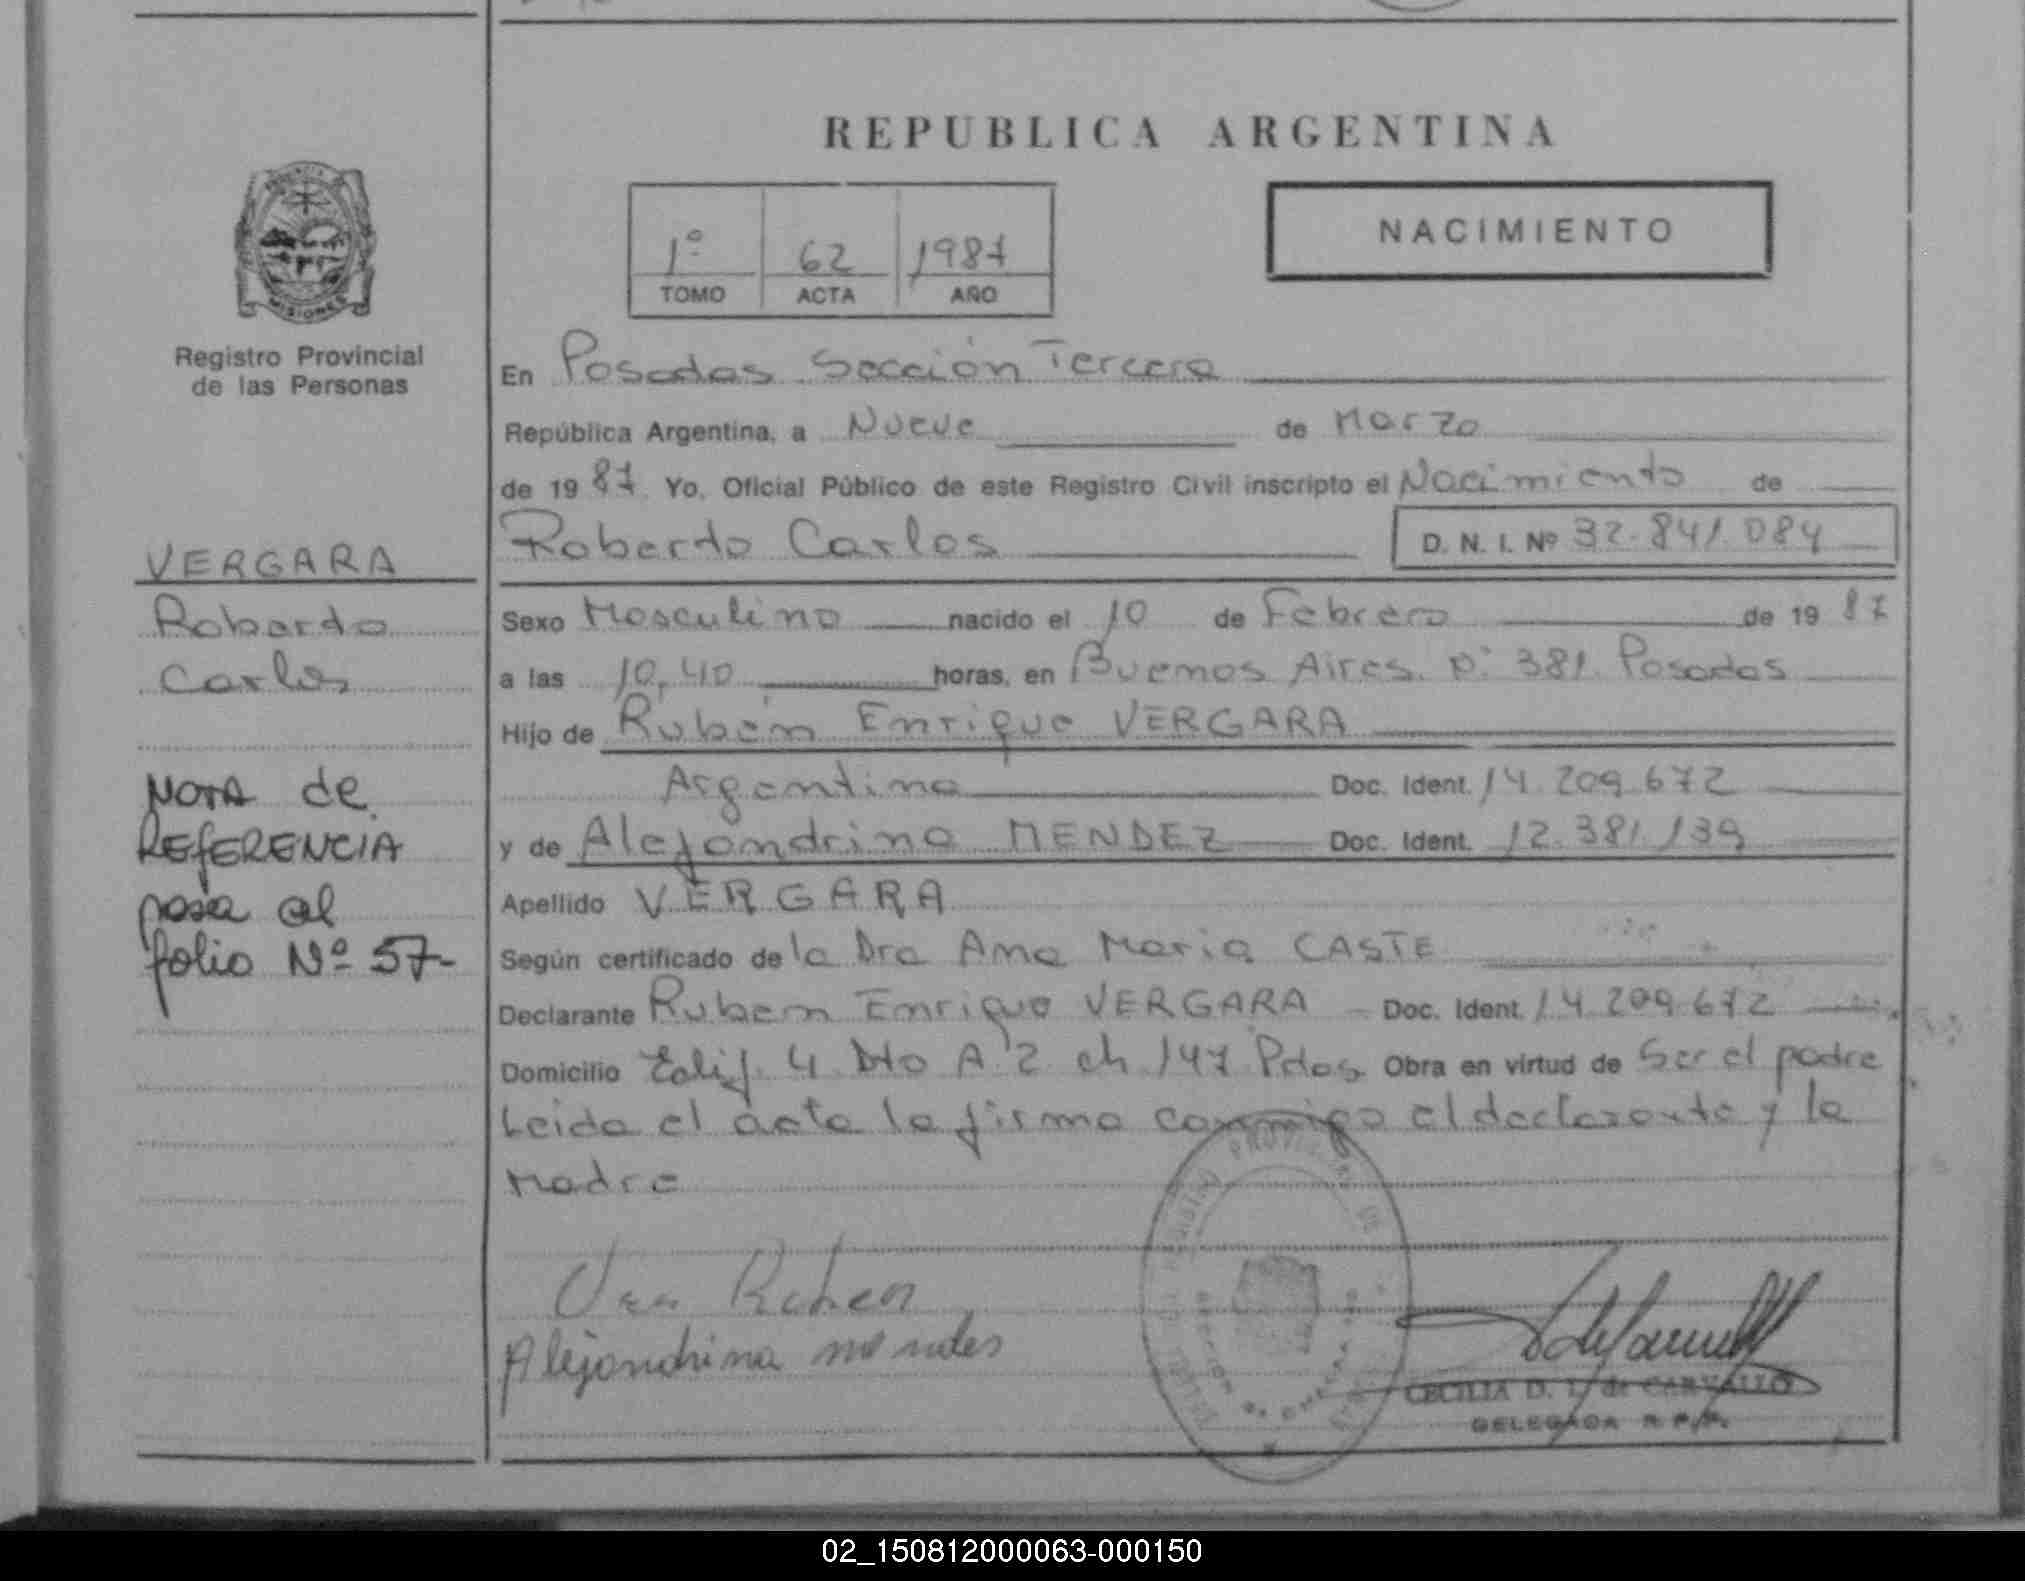 REPUBLICA ARGENTINA
NACIMIENTO
1º 62 1987
TOMO ACTA AÑO
MISIONES
Registro Provincial
de las Personas
En Posadas Sección Tercera
República Argentina, a Nueve de Marzo
de 1987 Yo, Oficial Público de este Registro Civil inscripto el Nacimiento de
Roberto Carlos D. N. I. Nº 32.841.084
VERGARA
Roberto
Carlos
Sexo Masculino nacido el 10 de Febrero de 1987
a las 10,40 horas, en Buenos Aires nº 381 Posadas
Hijo de Rubén Enrique VERGARA
Argentina Doc. Ident. 14.209.672
y de Alejandrina MENDEZ Doc. Ident. 12.381.139
NOTA de
REFERENCIA
pasa al
folio Nº 57-
Apellido VERGARA
Según certificado de la Dra Ana Maria CASTE
Declarante Ruben Enrique VERGARA - Doc. Ident. 14.209.672
Domicilio Edif. 4 Dto A 2 ch 147 Pdas Obra en virtud de Ser el padre
Leida el acta la firma conmigo el declarante y la
Madre
Ruben
Alejandrina mendes
CECILIA D. de CARVALLO
DELEGADA R.P.P.
02_150812000063-000150